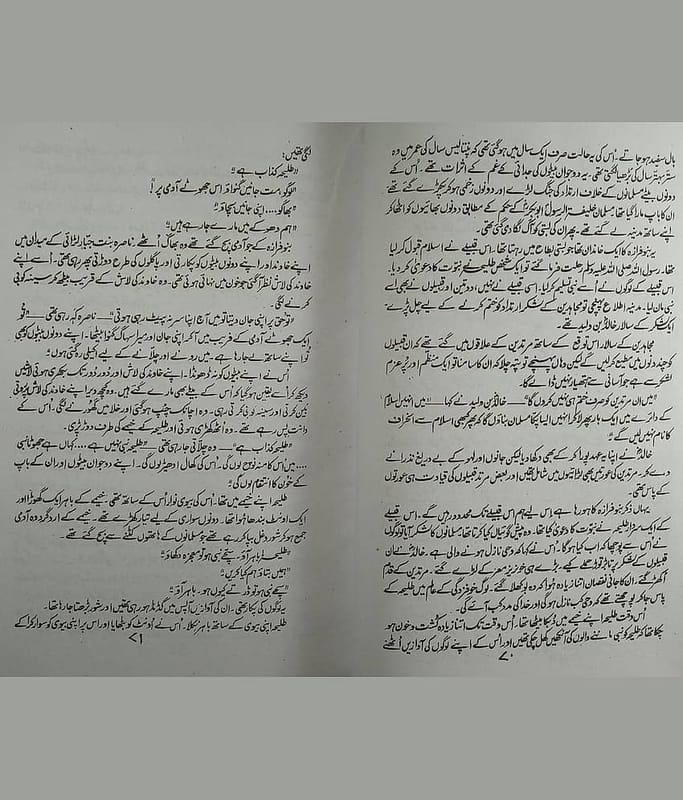 بال سفید ہو جاتے۔ اُس کی یہ حالت صرف ایک سال میں ہو گئی تھی کہ پینتالیس سال کی عمر میں وہ
ستّر بہتّر سال کی بڑھیا لگتی تھی۔ یہ دو جوان بیٹوں کی جدائی کے غم کے اثرات تھے۔ اُس کے
دونوں بیٹے مسلمانوں کے خلاف ارتداد کی جنگ لڑے اور دونوں زخمی ہو کر پکڑے گئے تھے
ان کا باپ مارا گیا تھا۔ مسلمان خلیفۃ الرسول ابوبکرؓ کے حکم کے مطابق دونوں بھائیوں کو اٹھا کر
اپنے ساتھ مدینہ لے گئے تھے۔ پھر ان کی بستی کو آگ لگا دی گئی تھی۔
یہ بنو فزارہ کا ایک خاندان تھا جو بستی بطاح میں رہتا تھا۔ اس قبیلے نے اسلام قبول کر لیا
تھا۔ رسول اللہ صلی اللہ علیہ وسلم رحلت فرما گئے تو ایک شخص طلیحہ نے نبوّت کا دعویٰ کر دیا۔
اس قبیلے کے لوگوں نے اُسے نبی تسلیم کر لیا۔ اسی قبیلے نے نہیں، دو تین اور قبیلوں نے بھی اسے
نبی مان لیا۔ مدینہ اطلاع پہنچی تو مجاہدین کے لشکر ارتداد کو ختم کرنے کے لیے چل پڑے۔
ایک لشکر کے سالار خالدؓ بن ولید تھے۔
مجاہدین کے سالار اس توقع کے ساتھ مرتدین کے علاقوں میں گئے تھے کہ ان قبیلوں
کو چند دنوں میں مطیع کر لیں گے لیکن وہاں پہنچے تو پتہ چلا کہ ان کا سامنا تو ایک منظم اور پُرعزم
لشکر سے ہے جو آسانی سے ہتھیار نہیں ڈالے گا۔
”میں ان مرتدین کو صرف ختم ہی نہیں کروں گا“ — خالدؓ بن ولید نے کہا — ”میں انہیں اسلام
کے دائرے میں ایک بار پھر لا کر انہیں ایسا پکا مسلمان بناؤں گا کہ پھر کبھی اسلام سے انحراف
کا نام نہیں لیں گے“
خالدؓ نے اپنا یہ عہد پورا کر کے بھی دکھا دیا لیکن جانوں اور لہو کے بے دریغ نذرانے
دے کر۔ مرتدین کی عورتیں بھی لڑائیوں میں شامل تھیں اور بعض مرتد قبیلوں کی قیادت ہی عورتوں
کے پاس تھی۔
یہاں ذکر بنو فزارہ کا ہو رہا ہے اس لیے ہم اس قبیلے تک محدود رہیں گے۔ اس قبیلے
کے ایک سردار طلیحہ نے نبوّت کا دعویٰ کیا تھا۔ وہ پیش گوئیاں کیا کرتا تھا۔ مسلمانوں کا لشکر آیا تو لوگوں
نے اُس سے پوچھا کہ اب کیا ہو گا۔ اُس نے کہا کہ وحی نازل ہونے والی ہے۔ خالدؓ نے ان
قبیلوں کے لشکر پر تابڑ توڑ حملے کیے۔ بڑے ہی خونریز معرکے لڑے گئے۔ مرتدین کے قدم
اُکھڑ گئے۔ ان کا جانی نقصان اتنا زیادہ ہوا کہ وہ بوکھلا گئے۔ لوگ خوفزدگی کے عالم میں طلیحہ کے
پاس جا کر پوچھتے تھے کہ وحی کب نازل ہو گی اور خدا کی مدد کب آئے گی۔
اُس وقت طلیحہ اپنے خیمے میں دُبکا بیٹھا تھا۔ اُس وقت تک اتنا زیادہ کشت و خون ہو
چکا تھا کہ طلیحہ کو نبی ماننے والوں کی آنکھیں کھل چکی تھیں اور اُس کے اپنے لوگوں کی آوازیں اُٹھنے
۷۰
لگی تھیں:
”طلیحہ کذّاب ہے“
”لوگو مت جانیں گنواؤ اس جھوٹے آدمی پر!“
”بھاگو.... اپنی جانیں بچاؤ“
”ہم دھوکے میں مارے جا رہے ہیں“
بنو فزارہ کے جو آدمی بچ گئے تھے وہ بھاگ اُٹھے۔ ناصرہ بنت جبار لڑائی کے میدان میں
اپنے خاوند اور اپنے دونوں بیٹوں کو پکارتی اور پاگلوں کی طرح دوڑتی پھر رہی تھی۔ اُسے اپنے
خاوند کی لاش نظر آ گئی جو خون میں نہائی ہوئی تھی۔ وہ خاوند کی لاش کے قریب بیٹھ کر سینہ کوبی
کرنے لگی۔
”تُو حق پر اپنی جان دیتا تو میں آج اپنا سر نہ پیٹ رہی ہوتی“ — ناصرہ کہہ رہی تھی — ”تُو
ایک جھوٹے آدمی کے فریب میں آ کر اپنی جان اور میرا سہاگ گنوا بیٹھا۔ اپنے دونوں بیٹوں کو بھی
تُو اپنے ساتھ لے جا رہا ہے۔ میں رونے اور چلّانے کے لیے اکیلی رہ گئی ہوں“
اُس نے اپنے بیٹوں کو نہ ڈھونڈا۔ اپنے خاوند کی لاش اور دُور دُور تک بکھری ہوئی لاشیں
دیکھ کر اُسے یقین ہو گیا کہ اُس کے بیٹے بھی مارے گئے ہیں۔ وہ کچھ دیر اپنے خاوند کی لاش پر روتی
بین کرتی اور سینہ کوبی کرتی رہی۔ وہ اچانک چپ ہو گئی اور خلا میں گھورنے لگی۔ اُس کے
دانت پس رہے تھے۔ وہ اُٹھ کھڑی ہوئی اور طلیحہ کے خیمے کی طرف دوڑ پڑی۔
”طلیحہ کذّاب ہے“ — وہ چلّاتی جا رہی تھی — ”طلیحہ نبی نہیں ہے.... کہاں ہے جھوٹا نبی
.... میں اُس کا منہ نوچ لوں گی۔ اُس کی کھال ادھیڑ لوں گی۔ اپنے دو جوان بیٹوں اور ان کے باپ
کے خون کا انتقام لوں گی“
طلیحہ اپنے خیمے میں تھا۔ اُس کی بیوی نوار اُس کے ساتھ تھی۔ خیمے کے باہر ایک گھوڑا اور
ایک اونٹ بندھا ہوا تھا۔ دونوں سواری کے لیے تیار کھڑے تھے۔ خیمے کے اردگرد وہ آدمی
جمع ہو کر شور و غل بپا کر رہے تھے جو مسلمانوں کے ہاتھوں کٹنے سے بچ گئے تھے۔
”طلیحہ! باہر آؤ۔ سچے نبی ہو تو معجزہ دکھاؤ“
”ہمیں بتاؤ ہم کیا کریں“
”سچے نبی ہو تو ڈرتے کیوں ہو۔ باہر آؤ“
یہ لوگوں کی پکار تھی۔ ان کی آوازیں آپس میں گڈمڈ ہو رہی تھیں اور شور بڑھتا جا رہا تھا۔
طلیحہ اپنی بیوی کے ساتھ باہر نکلا۔ اُس نے اونٹ کو بٹھایا اور اس پر اپنی بیوی کو سوار کرا کے
۷۱